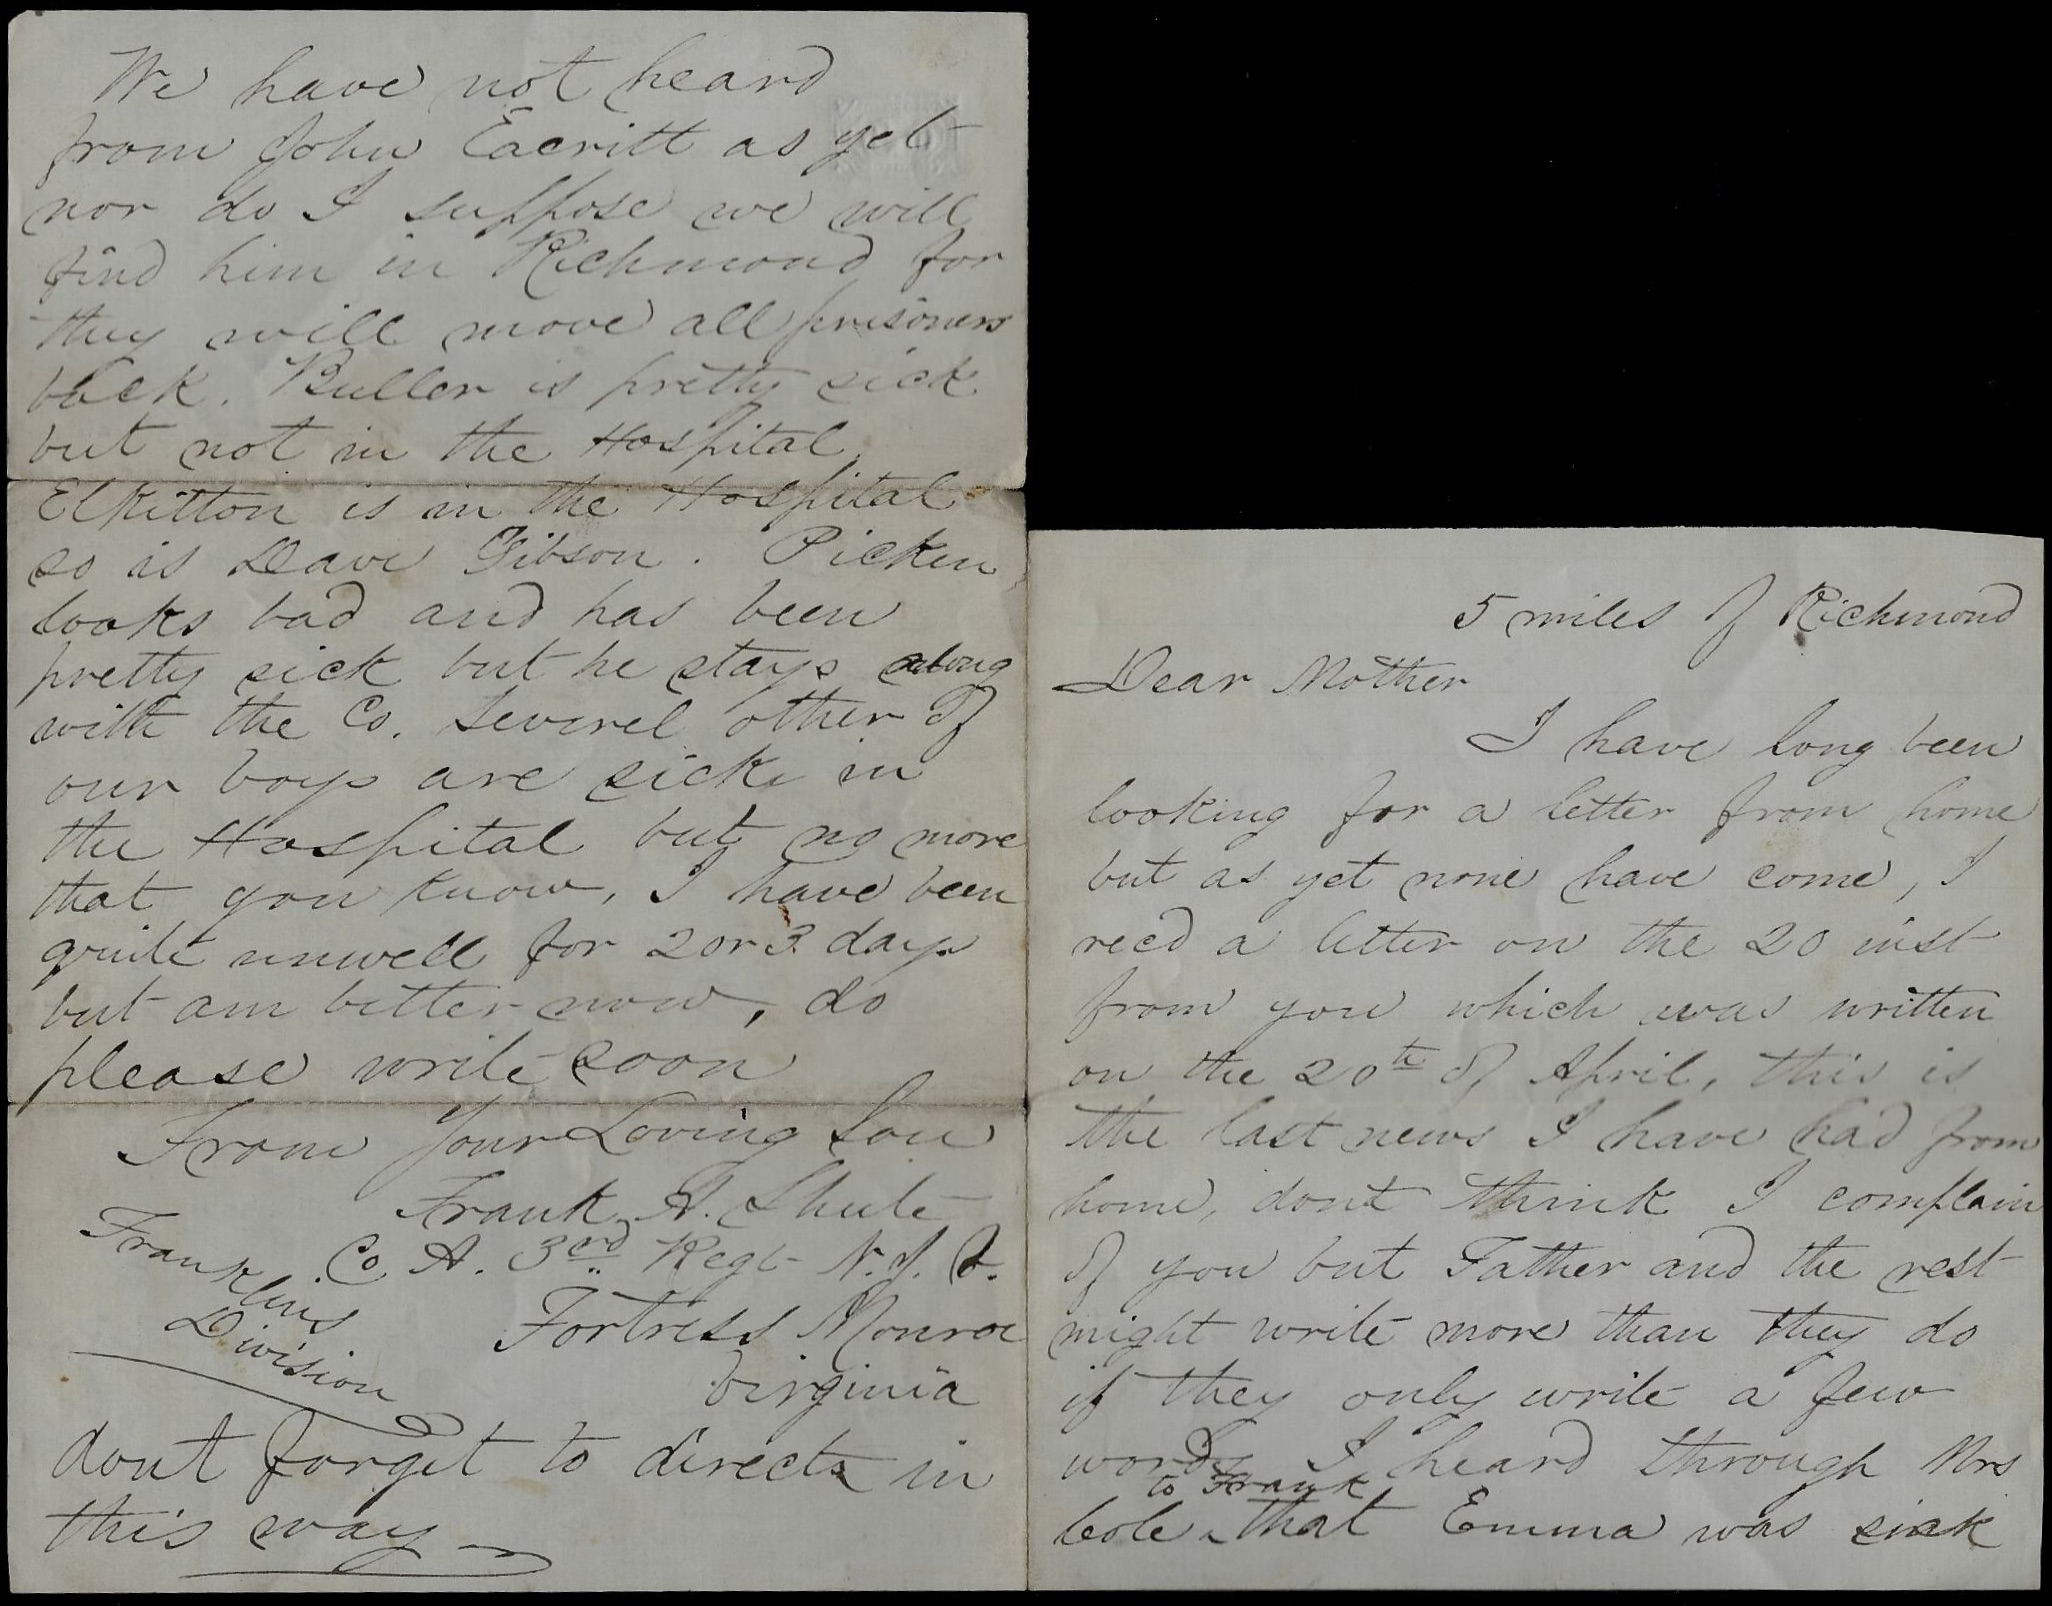 5 miles of Richmond
Dear Mother
I have long been
looking for a letter from home
but as yet none have come, I
recd a letter on the 20 inst
from you which was written
on the 20th of April, this is
the last news I have had from
home, dont think I complain
of you but Father and the rest
might write more than they do
if they only write a few
words I heard through Mrs
to Frank
Cole ^ that Emma was sick
We have not heard
from John Eacritt as yet
nor do I suppose we will
find him in Richmond for
they will move all prisoners
back. Buller is pretty sick
but not in the Hospital
Elkitton is in the Hospital
so is Dave Gibson. Picken
looks bad and has been
pretty sick but he stays along
with the Co. Severel other of
our boys are sick in
the Hospital but no more
that you know, I have been
quite unwell for 2 or 3 days
but am better now, do
please write soon
From Your Loving Son
Frank A. Shute
Co A. 3rd Regt N. J. V.
Fortress Monroe
Virginia
Franklins
Division
dont forget to direct in
this way